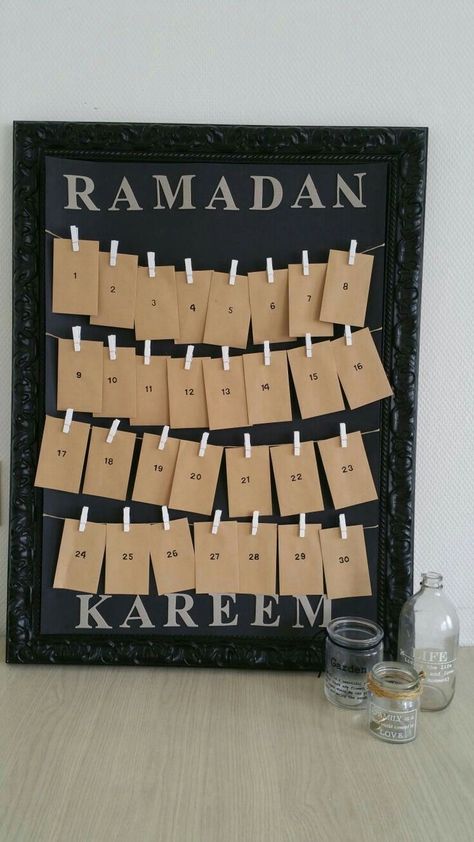 RAMADAN
1 2 3 4 5 6 7 8
9 10 11 12 13 14 15 16
17 18 19 20 21 22 23
24 25 26 27 28 29 30
KAREEM
Garden
LIFE
FAMILY
LOVE